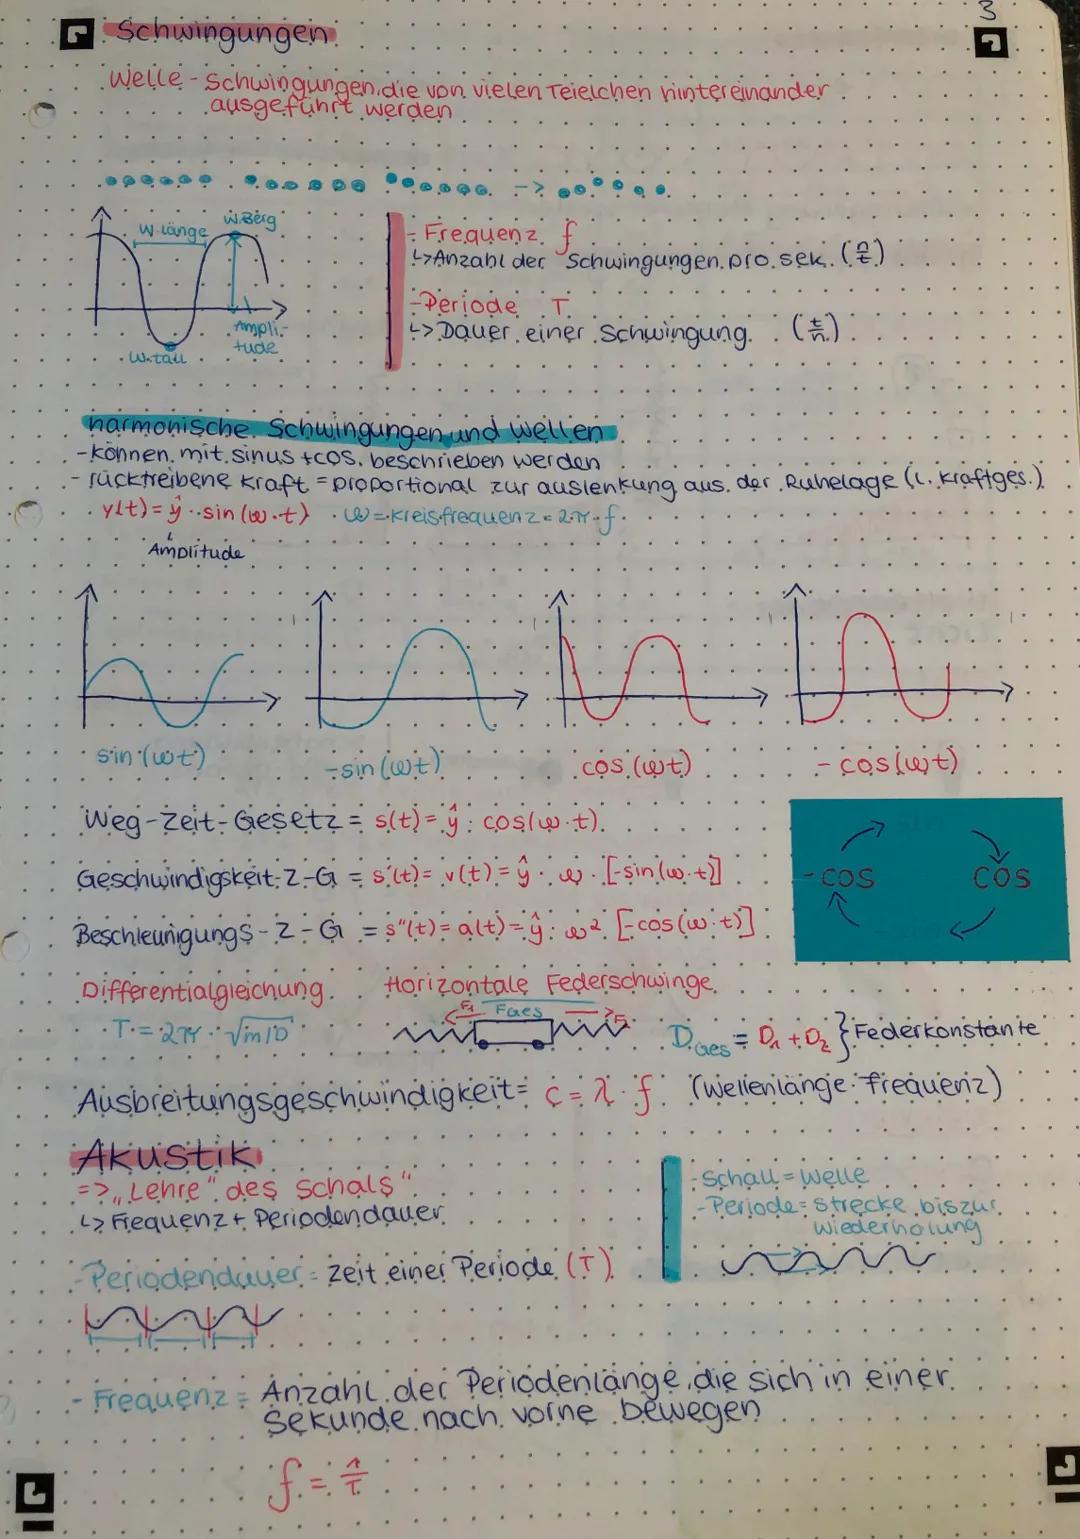 3
Schwingungen
Welle - Schwingungen, die von vielen Teielchen hintereinander
ausgeführt werden
->
W.länge
W.Berg
Ampli-
tude
W.tall
- Frequenz f
↳ Anzahl der Schwingungen pro sek. (n/t)
- Periode T
↳ Dauer einer Schwingung. (t/n)
harmonische Schwingungen und Wellen
- können mit sinus + cos. beschrieben werden
- rücktreibene Kraft = proportional zur auslenkung aus der Ruhelage (l. Kraftges.)
y(t) = ŷ · sin (ω·t) ω = Kreisfrequenz = 2·π·f
Amplitude
sin (ωt)
- sin (ωt)
cos (ωt)
- cos (ωt)
Weg-Zeit-Gesetz = s(t) = ŷ · cos(ω·t)
Geschwindigskeit-Z-G = s'(t) = v(t) = ŷ · ω · [-sin(ω·t)]
Beschleunigungs-Z-G = s"(t) = a(t) = ŷ · ω² [-cos(ω·t)]
- COS
COS
Differentialgleichung
T = 2π · √m/D
Horizontale Federschwinge
F₁ Fges F₂
D Ges = D₁ + D₂ } Federkonstante
Ausbreitungsgeschwindigkeit = c = λ · f (wellenlänge · frequenz)
Akustik
=> „Lehre" des schals"
↳ Frequenz + Periodendauer
- Schall = Welle
- Periode = strecke bis zur
Wiederholung
- Periodendauer = Zeit einer Periode (T)
- Frequenz = Anzahl der Periodenlänge, die sich in einer
Sekunde nach vorne bewegen
f = 1/T